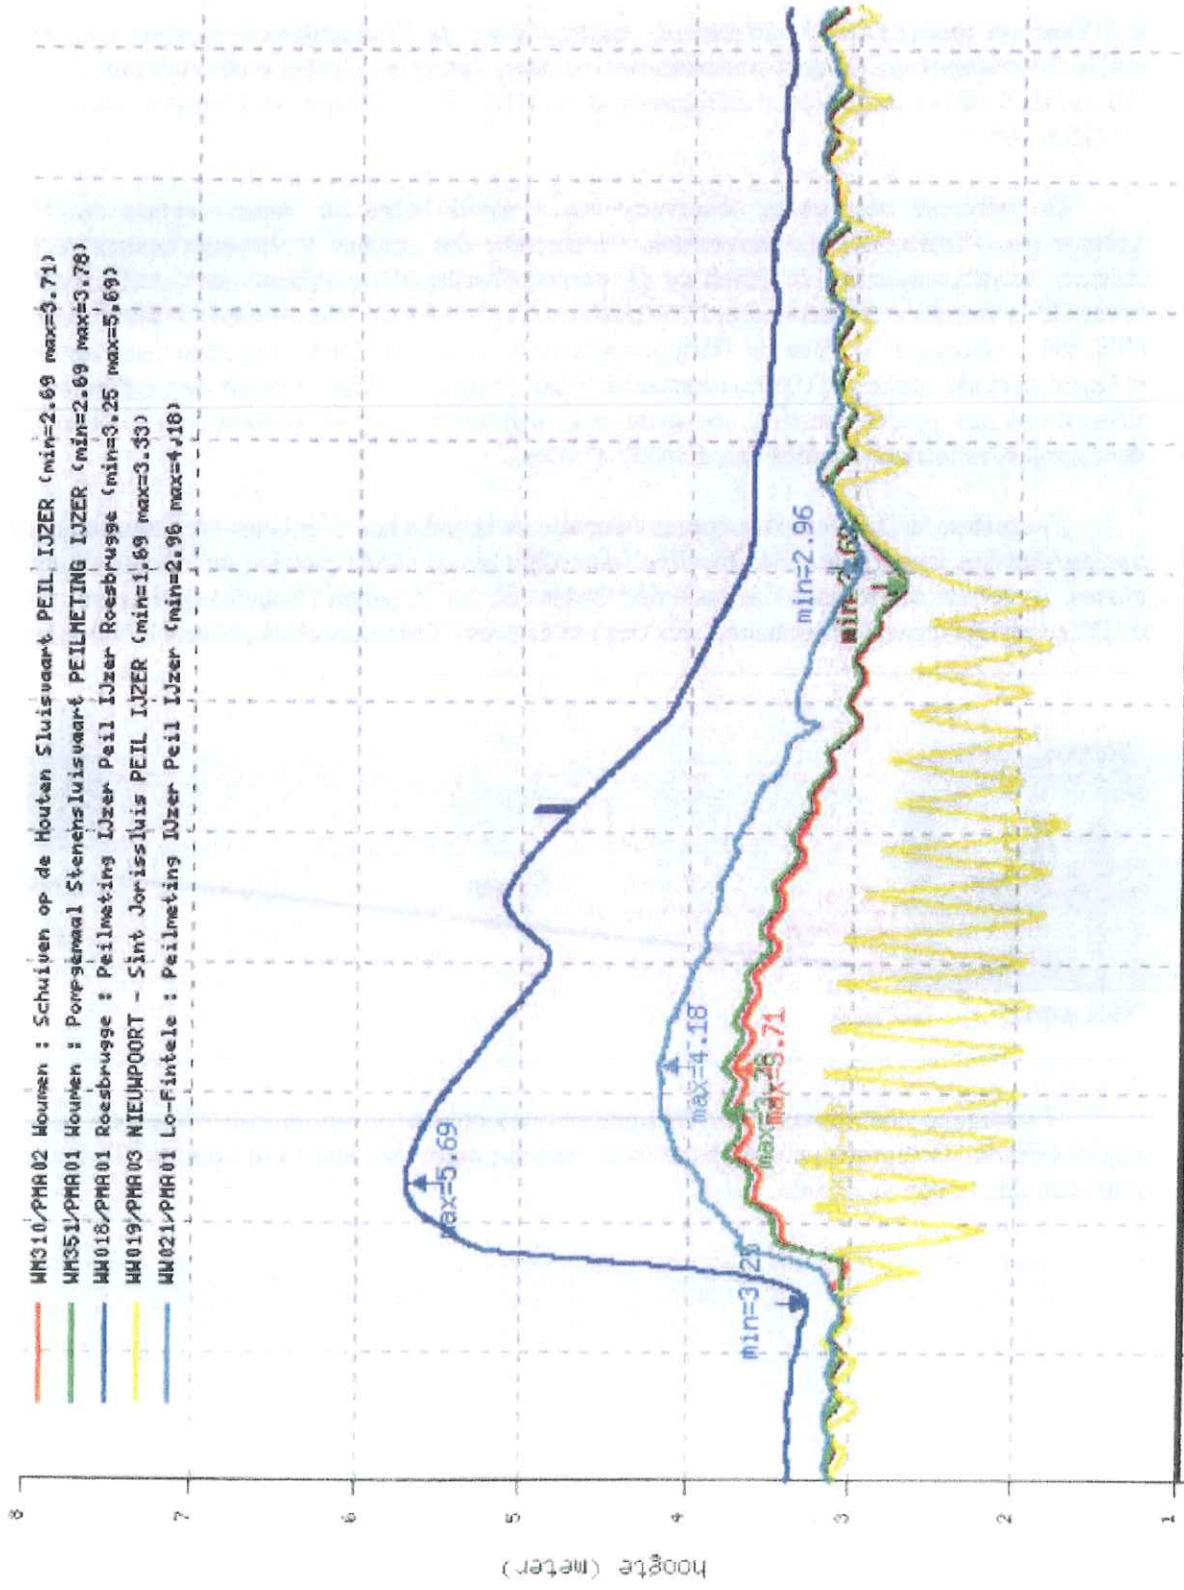 WM310/PMA02 Woumen : Schuiven op de Houten Sluisvaart PEIL IJZER (min=2.69 max=3.71)
WM351/PMA01 Woumen : Pompgemaal Stenensluisvaart PEILMETING IJZER (min=2.69 max=3.78)
WW018/PMA01 Roesbrugge : Peilmeting IJzer Peil IJzer Roesbrugge (min=3.25 max=5.69)
WW019/PMA03 NIEUWPOORT - Sint Jorissluis PEIL IJZER (min=1.69 max=3.33)
WW021/PMA01 Lo-Fintele : Peilmeting IJzer Peil IJzer (min=2.96 max=4.18)
8
7
6
5
4
3
2
1
hoogte (meter)
max=5.69
min=3.25
max=4.18
max=3.78
max=3.71
min=2.96
min=2.69